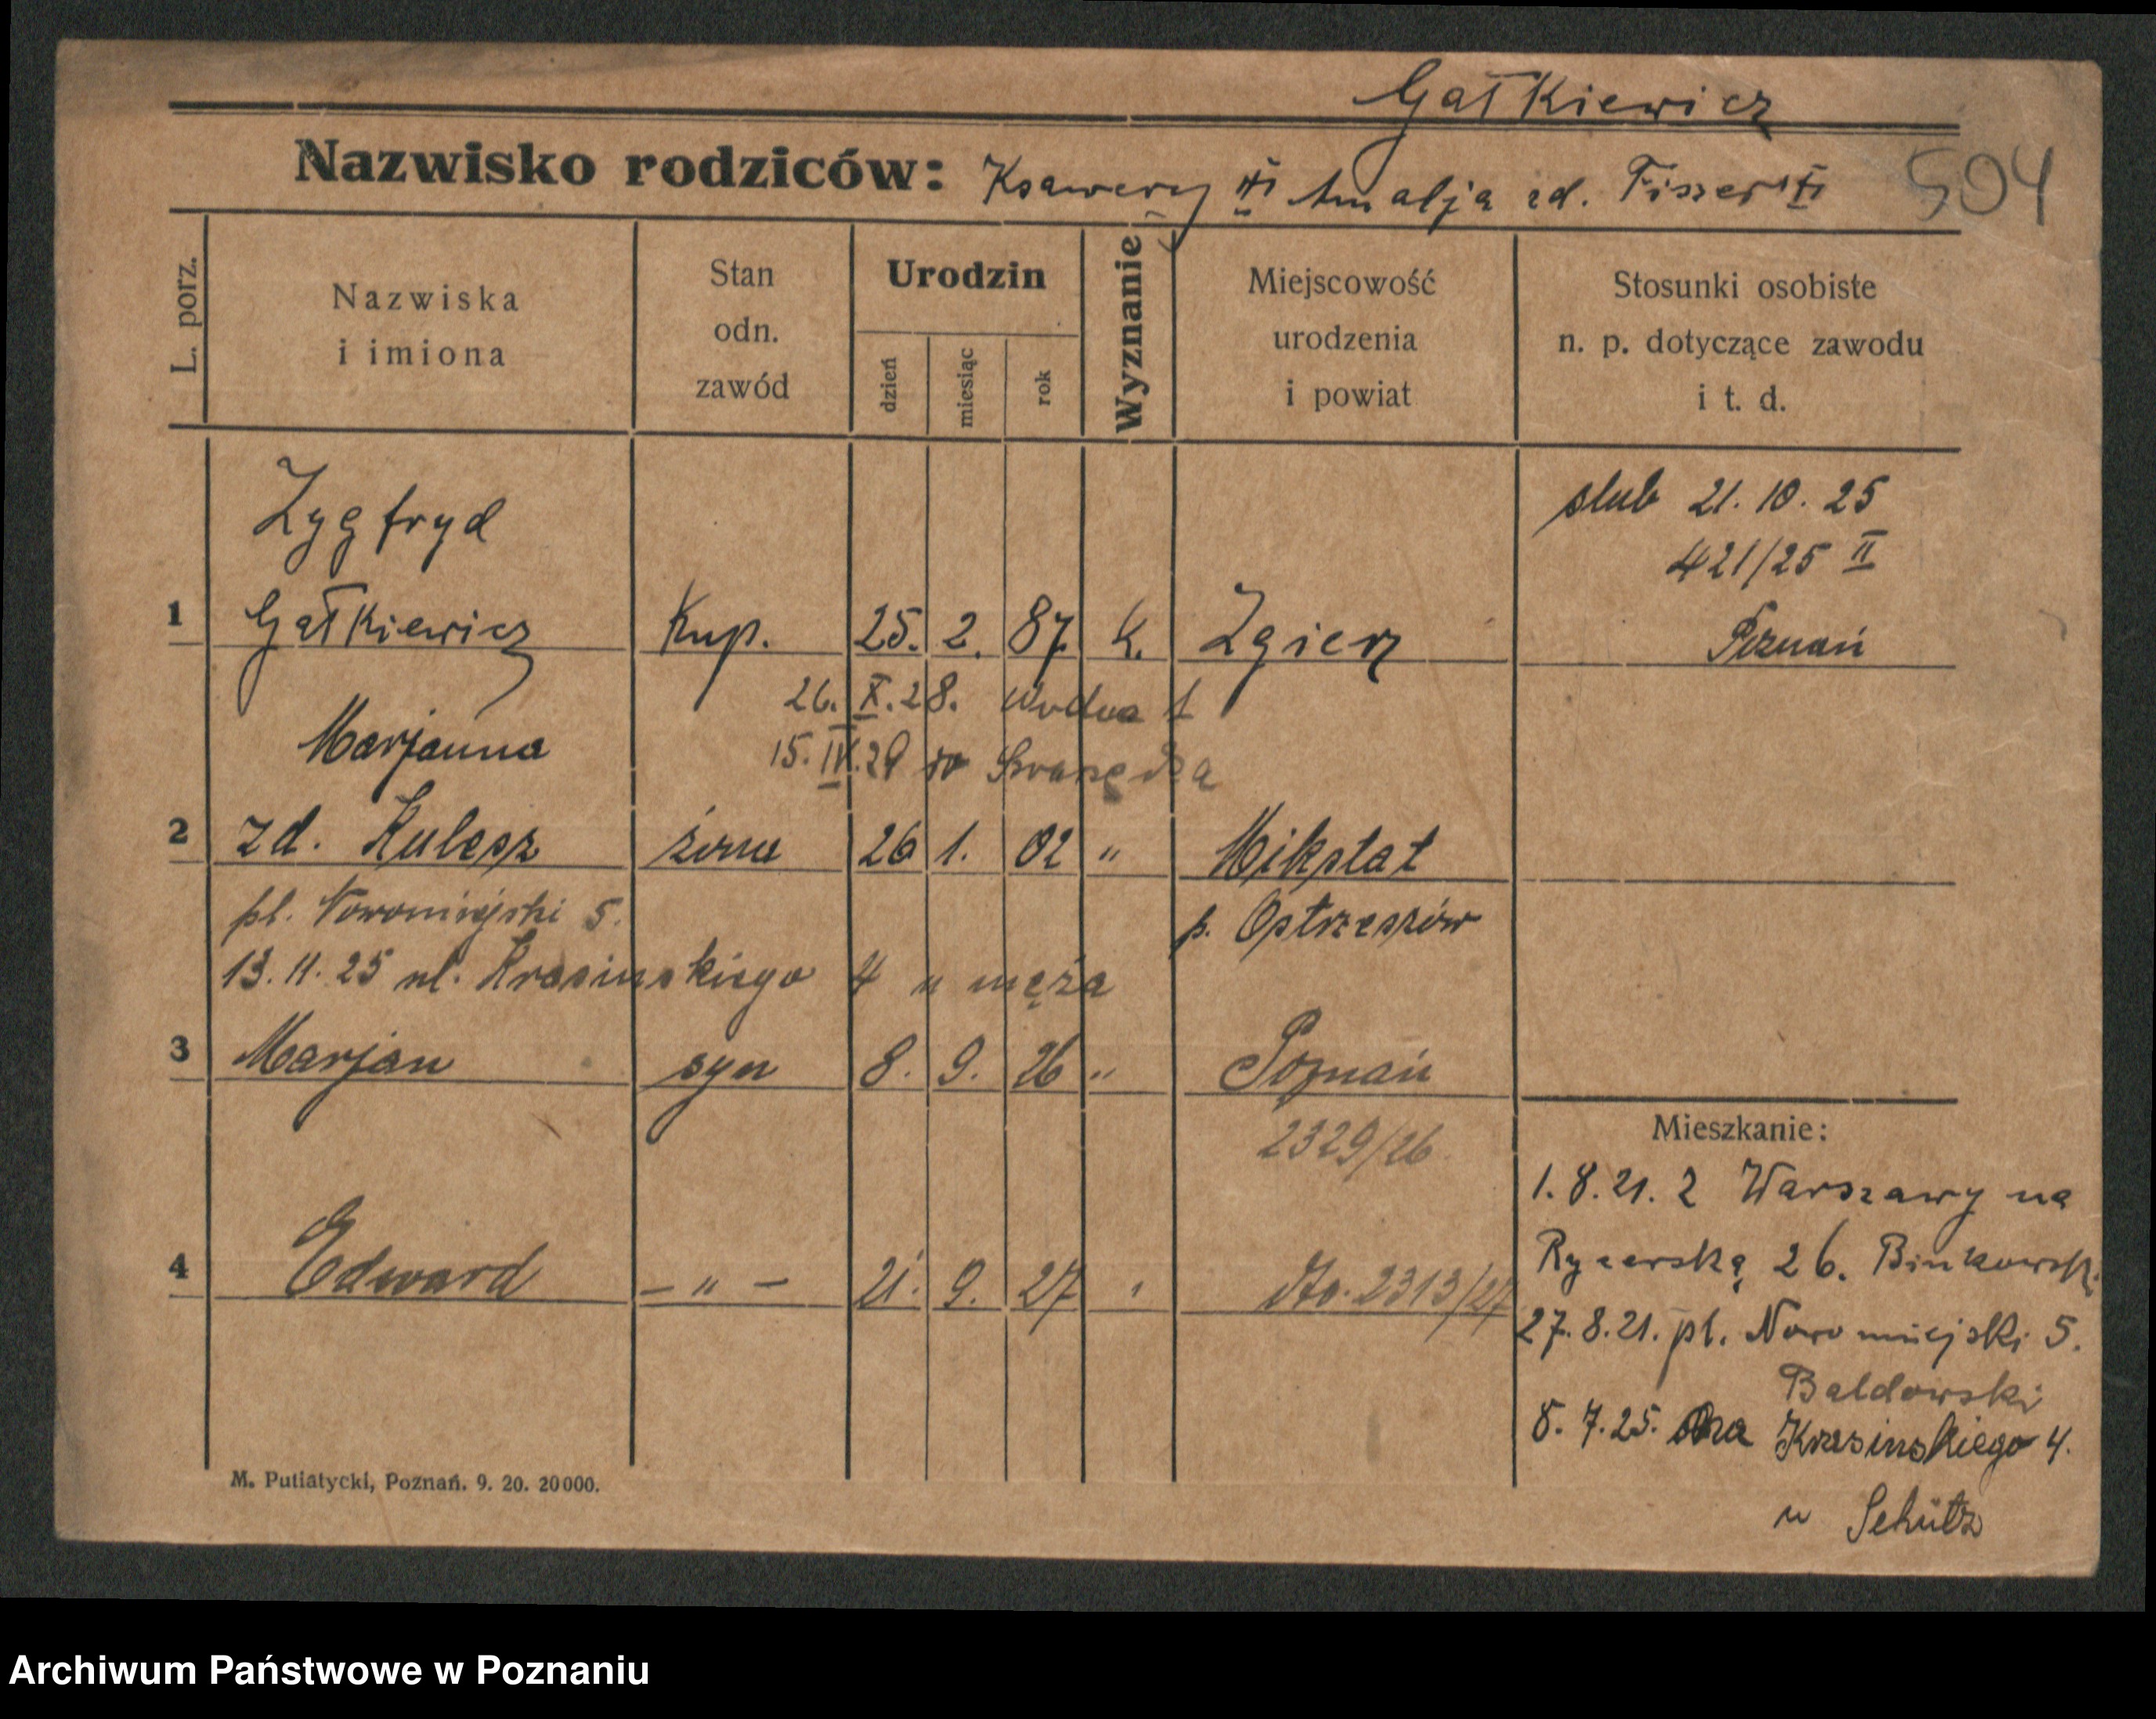 Gałkiewicz
Nazwisko rodziców: Ksawery Amalja zd. Fiszer
504
L. porz.
Nazwiska
i imiona
Stan
odn.
zawód
Urodzin
dzień
miesiąc
rok
Wyznanie
Miejscowość
urodzenia
i powiat
Stosunki osobiste
n. p. dotyczące zawodu
i t. d.
Zygfryd
slub 21. 10. 25
421/25 II
1 Gałkiewicz Kup. 25. 2. 87. k. Zgierz Poznań
26. X. 28. Wodna 1
Marjanna
15. IV. 29 do Swarzędza
2 zd. Kulesz żona 26 1. 02 " Mikstat
pl. Nowomiejski 5.
p. Ostrzeszów
13. 11. 25 ul. Krasinskiego 4 u męża
3 Marjan syn 8. 9. 26 " Poznań
2329/26
4 Edward - " - 21. 9. 27 " dto. 2313/27
Mieszkanie:
1. 8. 21. z Warszawy na
Rycerską 26. Binkowski
27. 8. 21. pl. Nowomiejski 5.
Baldowski
8. 7. 25. na Krasinskiego 4.
u Schütz
M. Putiatycki, Poznań. 9. 20. 20000.
Archiwum Państwowe w Poznaniu